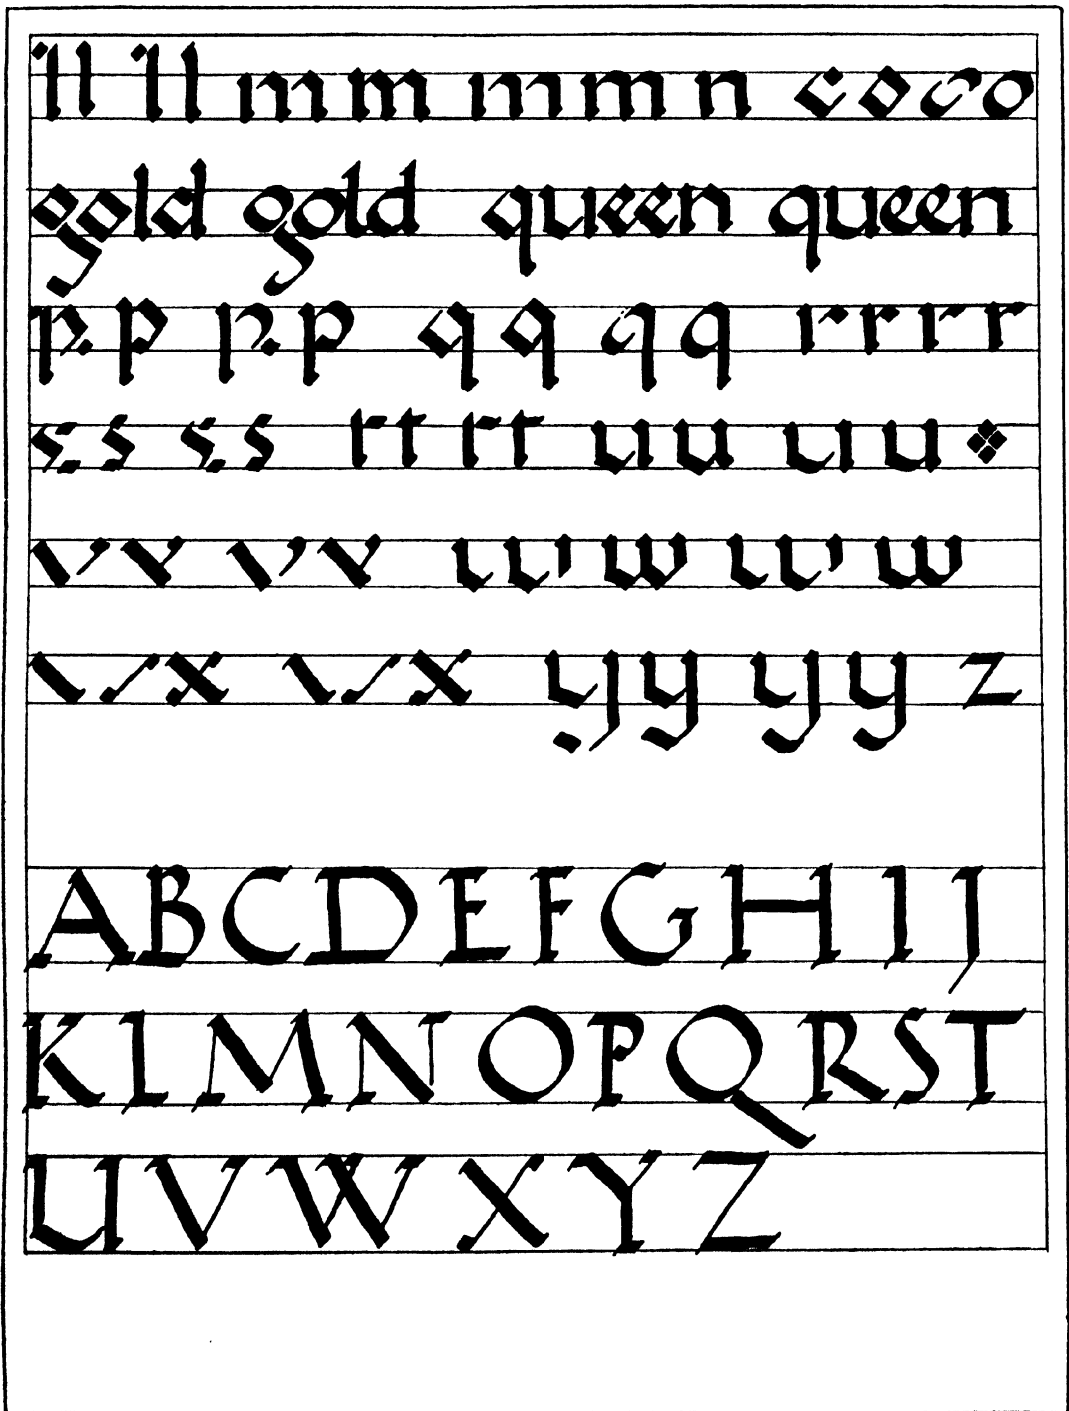 ıl l ıl l ım m ım m n c o c o
gold gold queen queen
p p p p q q q q r r r r
s s s s t t t t u u u u
v v v v w w w w
x x x x y y y y z
ABCDEFGHIJ
KLMNOPQRST
UVWXYZ